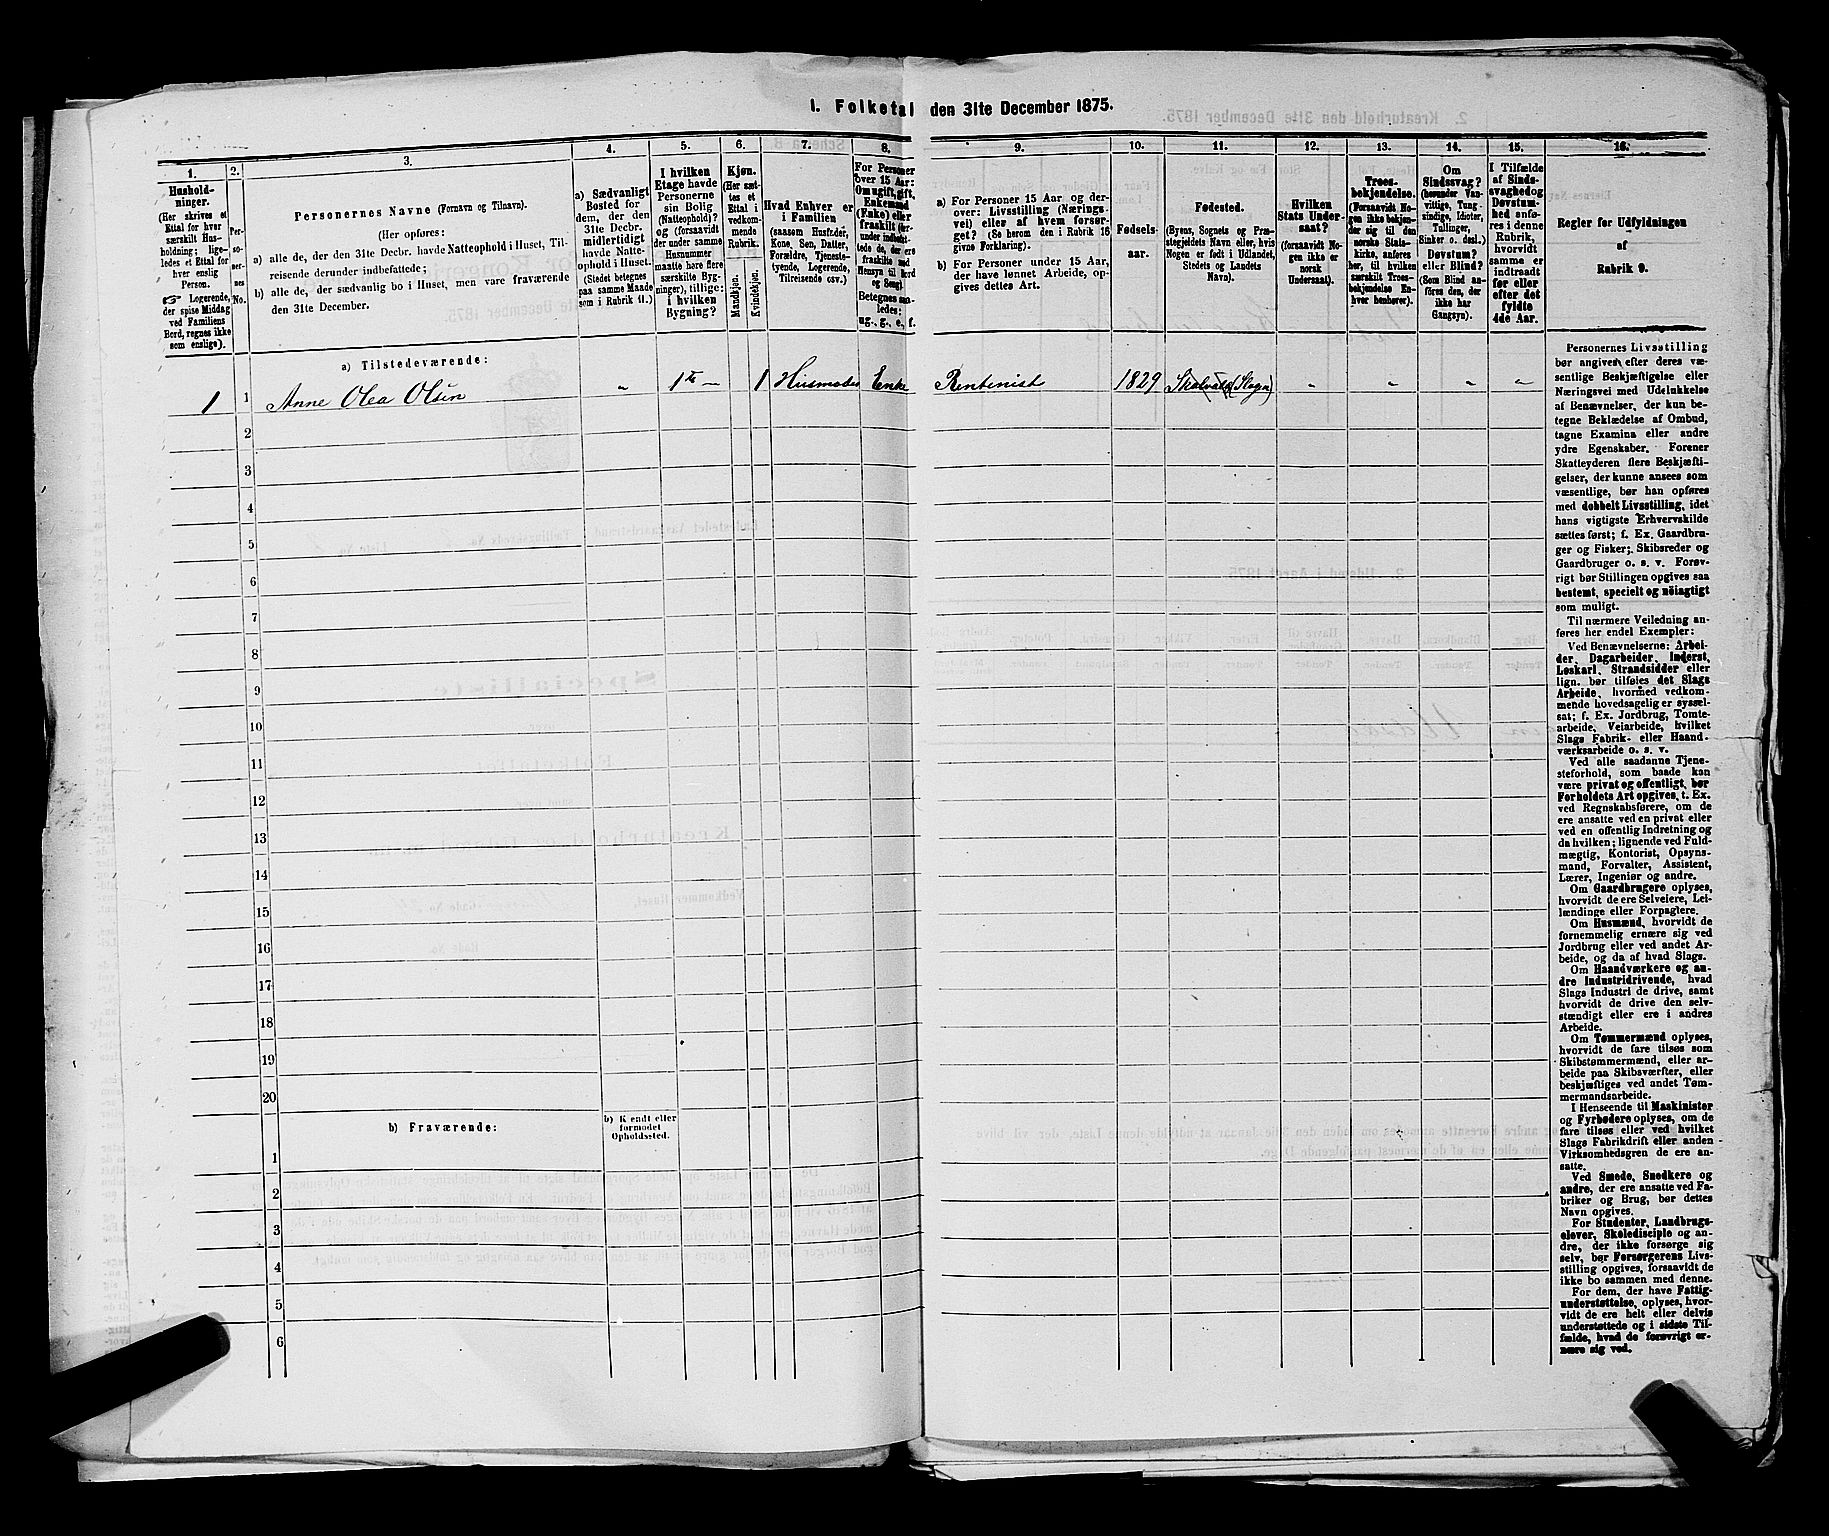 1. Folketal den 31te December 1875.
1.
Hushold-
ninger.
(Her skrives et
Ettal for hver
særskilt Hus-
holdning; lige-
ledes et Ettal for
hver enslig
Person.
☞ Logerende,
der spise Middag
ved Familiens
Bord, regnes ikke
som enslige).
2.
Per-
so-
ner-
nes
No.
3.
Personernes Navne (Fornavn og Tilnavn).
(Her opføres:
a) alle de, der den 31te Decbr. havde Natteophold i Huset, Til-
reisende derunder indbefattede;
b) alle de, der sædvanlig bo i Huset, men vare fraværende
den 31te December.
4.
a) Sædvanligt
Bosted for
dem, der den
31te Decbr.
midlertidigt
havde Natte-
ophold i Huset.
(Stedet betegnes
paa samme Maade
som i Rubrik 11.)
5.
I hvilken
Etage havde
Personerne
sin Bolig
(Natteophold)?
og (forsaavidt
der under samme
Husnummer
maatte høre flere
særskilte Byg-
ninger), tillige:
i hvilken
Bygning?
6.
Kjøn.
(Her sæt-
tes et
Ettal i
vedkom-
mende
Rubrik.
Mandkjøn.
Kvindekjøn.
7.
Hvad Enhver er
i Familien
(saasom Husfader,
Kone, Søn, Datter,
Forældre, Tjeneste-
tyende, Logerende,
Tilreisende osv.)
8.
For Personer
over 15 Aar:
Om ugift, gift,
Enkemand
(Enke) eller
fraskilt
Betegnes saa-
ledes:
ug., g., e., f.
9.
a) For Personer 15 Aar og der-
over: Livsstilling (Nærings-
vei) eller af hvem forsør-
get? (Se herom den i Rubrik 16
givne Forklaring).
b) For Personer under 15 Aar,
der have lønnet Arbeide, op-
gives dettes Art.
10.
Fødsels-
aar.
11.
Fødested.
(Byens, Sognets og Præ-
stegjeldets Navn eller, hvis
Nogen er født i Udlandet,
Stedets og Landets
Navn).
12.
Hvilken
Stats Under-
saat?
(forsaavidt No-
gen ikke er
norsk
Undersaat).
13.
Troes-
bekjendelse.
(Forsaavidt No-
gen ikke bekjen-
der sig til den
norske Stats-
kirke, anføres
her, til hvilken
særskilt Troes-
bekjendelse En-
hver henhører).
14.
Om
Sindssvag?
(herunder Van-
vittige, Tung-
sindige, Idioter,
Tullinger,
Sinker o. desl.)
Døvstum?
eller Blind?
(Som Blind an-
føres den, der
ikke har
Gangsyn).
15.
I Tilfælde
af Sinds-
svaghed og
Døvstum-
hed anfø-
res i denne
Rubrik,
hvorvidt
samme er
indtraadt
før eller
efter det
fyldte
4de Aar.
16.
Regler for Udfyldningen
af
Rubrik 9.
a) Tilstedeværende:
1 1 Anne Olea Olsen „ 1te — 1 Husmoder Enke Rentenist 1829 (Slagn) „ „ „ „
2
3
4
5
6
7
8
9
10
11
12
13
14
15
16
17
18
19
20
b) Fraværende:
b) Kjendt eller
formodet
Opholdssted.
1
2
3
4
5
6
Personernes Livsstilling
bør angives efter deres væ-
sentlige Beskjæftigelse eller
Næringsvei med Udelukkelse
af Benævnelser, der kun be-
tegne Beklædelse af Ombud,
tagne Examina eller andre
ydre Egenskaber. Forener
Skatteyderen flere Beskjæfti-
gelser, der kunne ansees som
væsentlige, bør han opføres
med dobbelt Livsstilling, idet
hans vigtigste Erhvervskilde
sættes først; f. Ex. Gaardbru-
ger og Fisker; Skibsreder og
Gaardbruger o. s. v. Forøv-
rigt bør Stillingen opgives saa
bestemt, specielt og nöiagtigt
som muligt.
Til nærmere Veiledning an-
føres her endel Exempler:
Ved Benævnelserne: Arbei-
der, Dagarbeider, Inderst,
Løskarl, Strandsidder eller
lign. bør tilføies det Slags
Arbeide, hvormed vedkom-
mende hovedsagelig er syssel-
sat; f. Ex. Jordbrug, Tomte-
arbeide, Veiarbeide, hvilket
Slags Fabrik- eller Haand-
værksarbeide o. s. v.
Ved alle saadanne Tjene-
steforhold, som baade kan
være privat og offentligt, bør
Forholdets Art opgives, t. Ex.
ved Regnskabsførere, om de
ere ansatte ved en privat eller
ved en offentlig Indretning og
da hvilken; lignende ved Fuld-
mægtig, Kontorist, Opsyns-
mand, Forvalter, Assistent,
Lærer, Ingeniør og andre.
Om Gaardbrugere oplyses,
hvorvidt de ere Selveiere, Lei-
lændinge eller Forpagtere.
Om Husmænd, hvorvidt de
fornemmelig ernære sig ved
Jordbrug eller ved andet Ar-
beide, og da af hvad Slags.
Om Haandværkere og an-
dre Industridrivende, hvad
Slags Industri de drive, samt
hvorvidt de drive den selv-
stændigt eller ere i andres
Arbeide.
Om Tømmermænd oplyses,
hvorvidt de fare tilsøs som
Skibstømmermænd, eller ar-
beide paa Skibsværfter, eller
beskjæftiges ved andet Tøm-
mermandsarbeide.
I Henseende til Maskinister
og Fyrbødere oplyses, om de
fare tilsøs eller ved hvilket
Slags Fabrikdrift eller anden
Virksomhedsgren de ere an-
satte.
Ved Smede, Snedkere og
andre, der ere ansatte ved Fa-
briker og Brug, bør dettes
Navn opgives.
For Studenter, Landbrugs-
elever, Skoledisciple og an-
dre, der ikke forsørge sig
selv, bør Forsørgerens Livs-
stilling opgives, forsaavidt de
ikke bo sammen med denne.
For dem, der have Fattig-
understøttelse, oplyses, hvor-
vidt de ere helt eller delvis
understøttede og i sidste Til-
fælde, hvad de forøvrigt er-
nære sig ved.